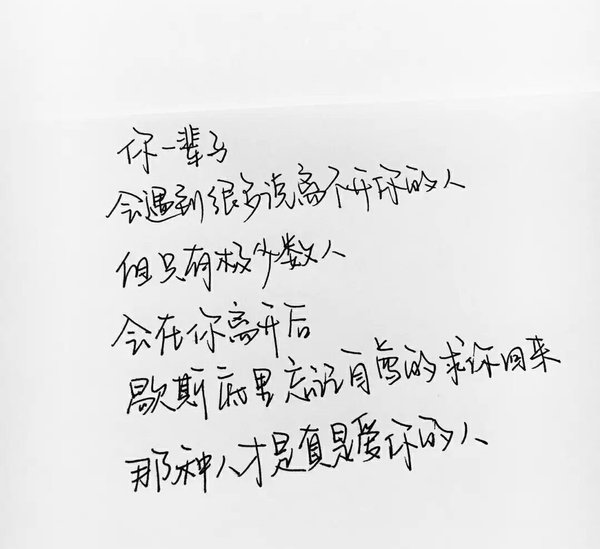 你一辈子
会遇到很多说离不开你的人
但只有极少数人
会在你离开后
歇斯底里忘记自尊的求你回来
那种人才是真是爱你的人